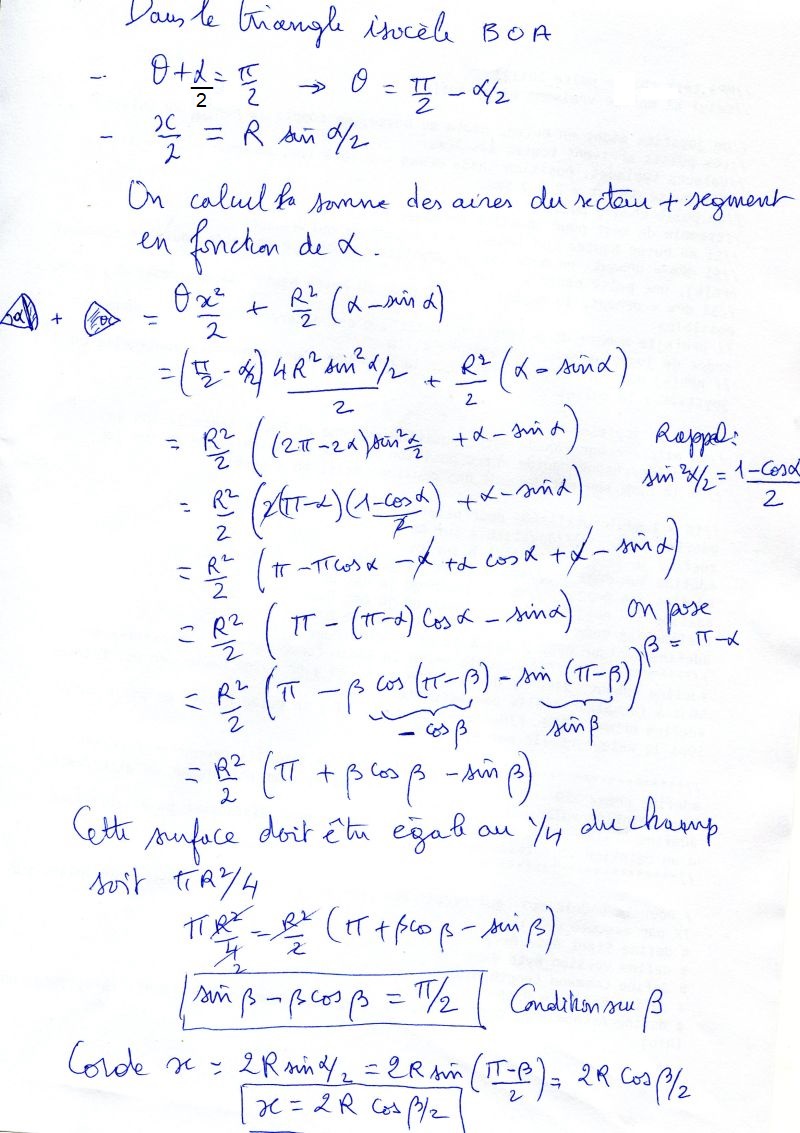 Dans le triangle isocèle BOA
- θ + α/2 = π/2 → θ = π/2 - α/2
- x/2 = R sin α/2
On calcul la somme des aires du secteur + segment
en fonction de α.
α + α = θ x²/2 + R²/2 (α - sin α)
= (π/2 - α/2) 4R² sin² α/2 / 2 + R²/2 (α - sin α)
= R²/2 ((2π - 2α) sin² α/2 + α - sin α) Rappel:
sin² α/2 = (1 - cos α)/2
= R²/2 (2(π - α)(1 - cos α)/2 + α - sin α)
= R²/2 (π - π cos α - α + α cos α + α - sin α)
= R²/2 (π - (π - α) cos α - sin α) On pose
β = π - α
= R²/2 (π - β cos (π - β) - sin (π - β))
- cos β sin β
= R²/2 (π + β cos β - sin β)
Cette surface doit être égale au 1/4 du champ
soit πR²/4
π R²/4 = R²/2 (π + β cos β - sin β)
2
sin β - β cos β = π/2 Condition sur β
Corde x = 2R sin α/2 = 2R sin ((π - β)/2) = 2R cos β/2
x = 2R cos β/2